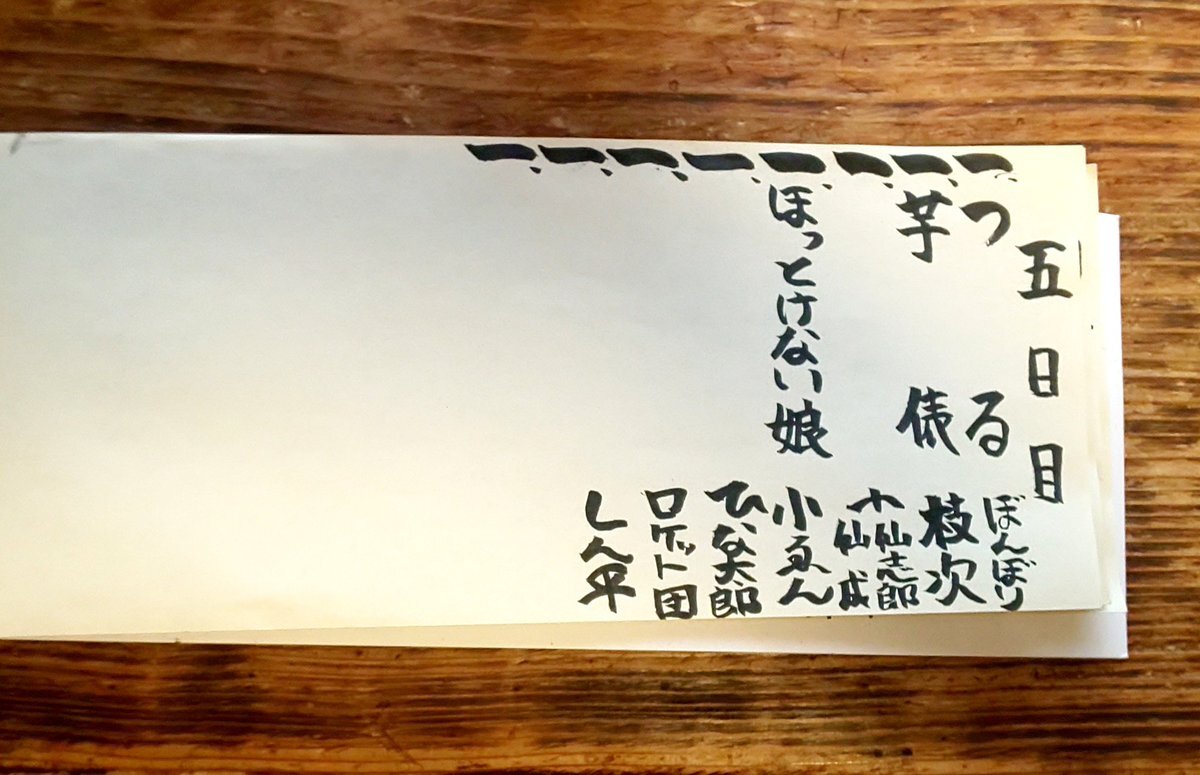 五日目
一、つる ぼんぼり
一、芋俵 枝次
一、仙志郎 仙成
一、ほっとけない娘 小ゑん
一、ひな太郎
一、ロケット団
一、しん平
一、